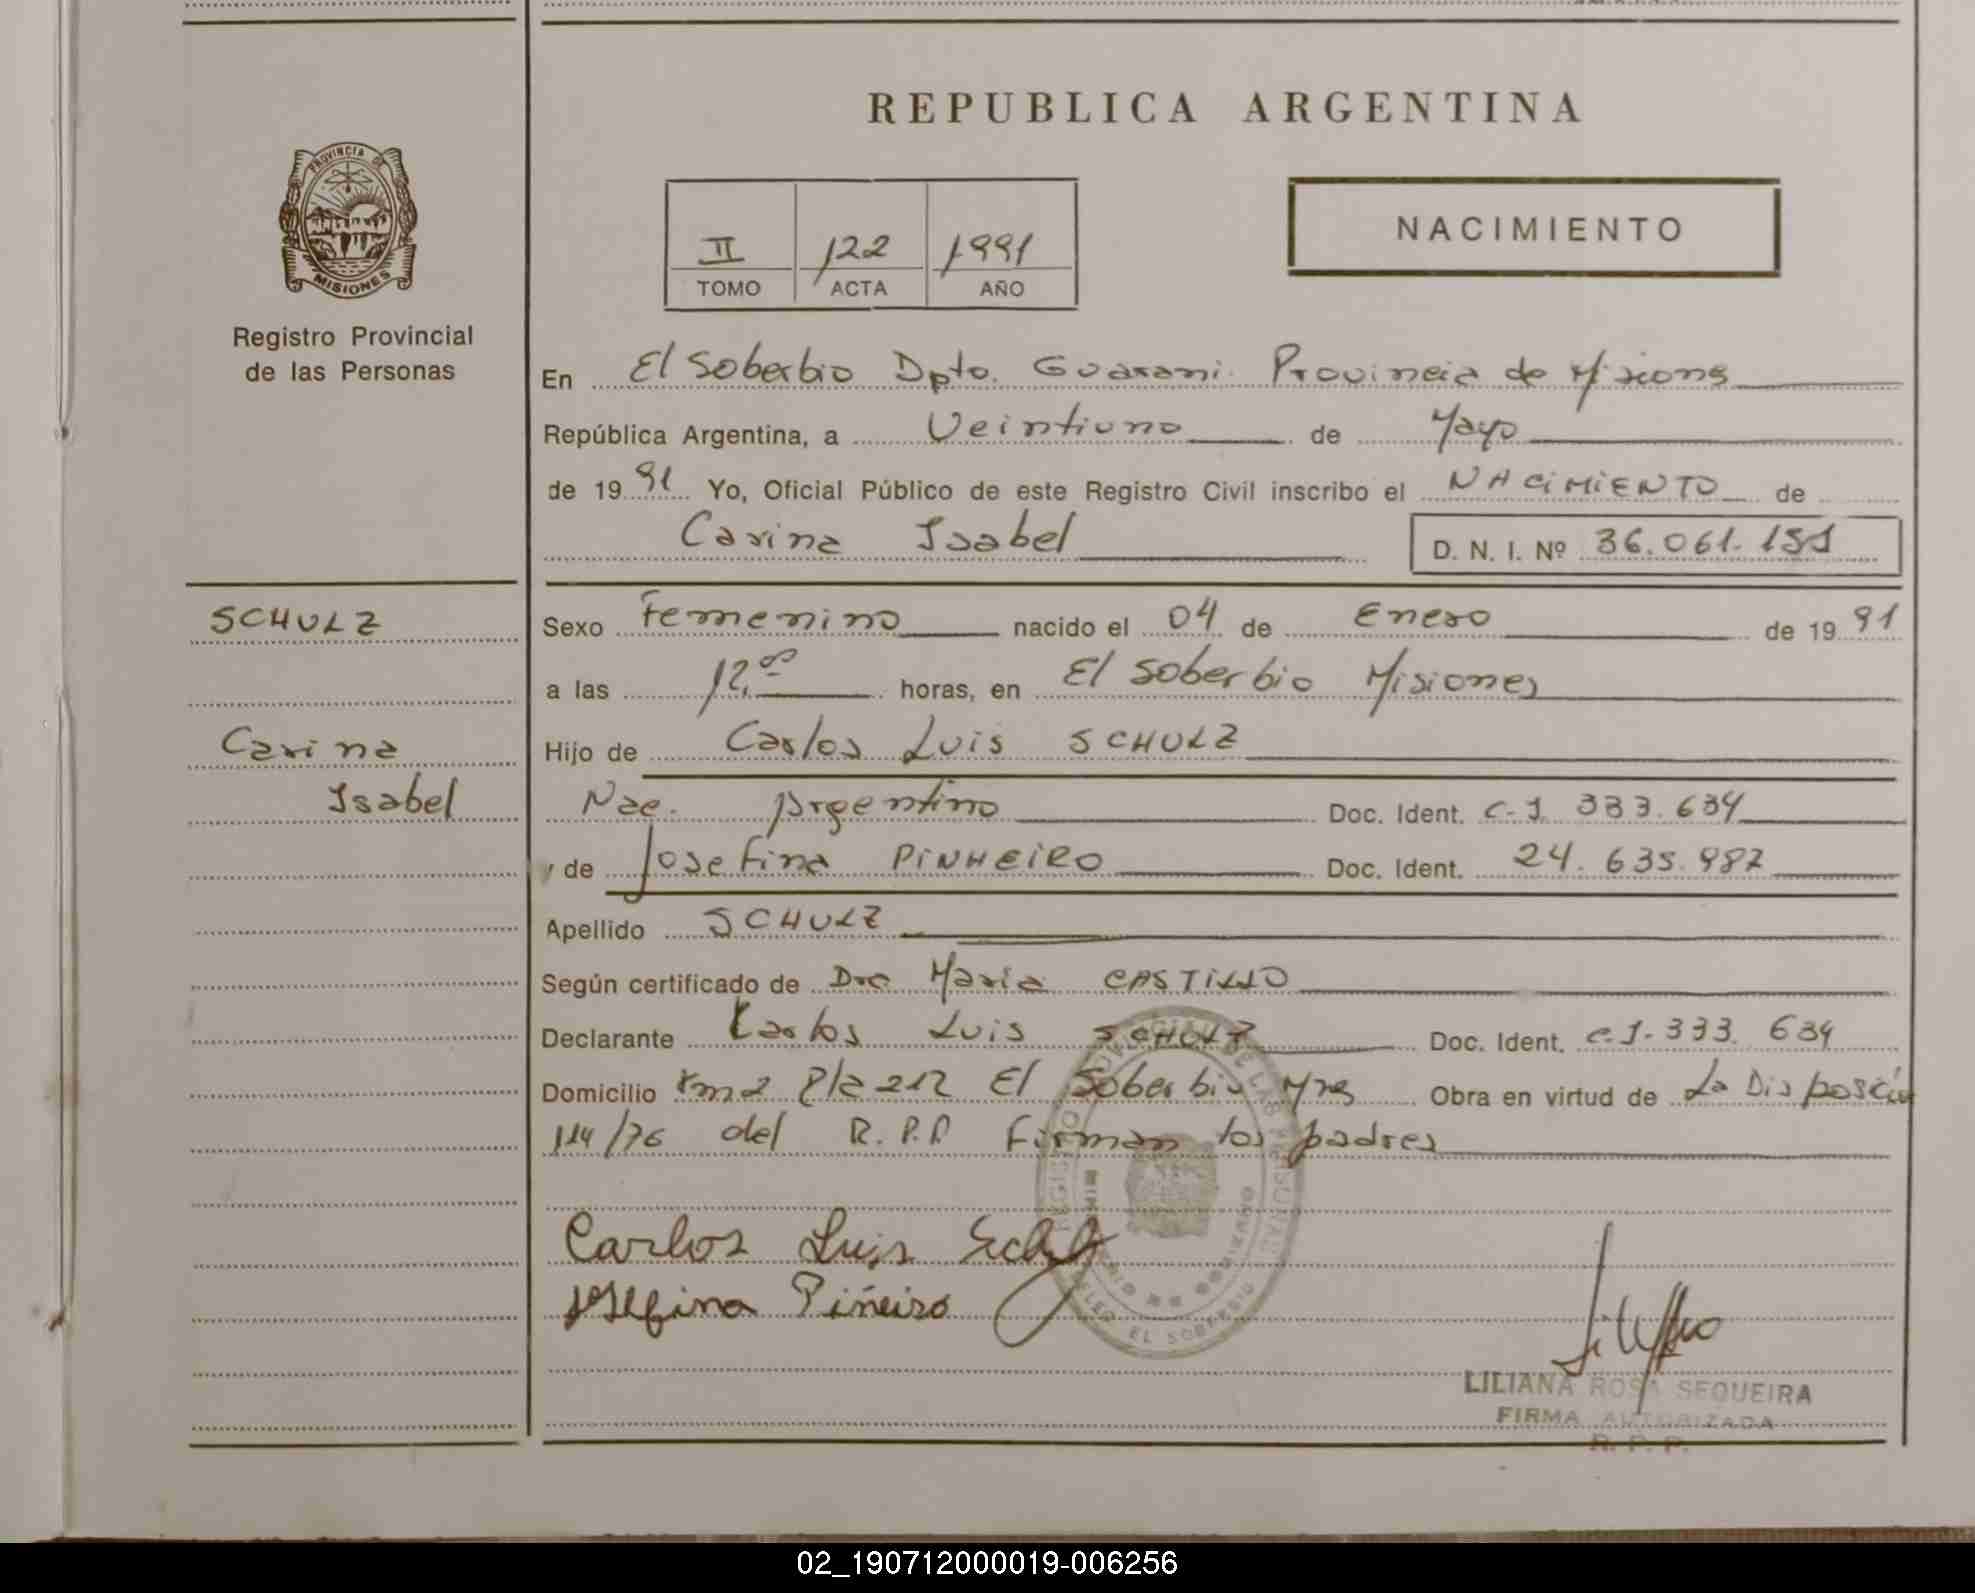 REPUBLICA ARGENTINA
PROVINCIA DE
MISIONES
Registro Provincial
de las Personas
II 122 1991
TOMO ACTA AÑO
NACIMIENTO
En El Soberbio Dpto. Guarani Provincia de Misiones
República Argentina, a Veintiuno de Mayo
de 1991 Yo, Oficial Público de este Registro Civil inscribo el NACIMIENTO de
Carina Isabel D. N. I. Nº 36.061.151
SCHULZ
Carina
Isabel
Sexo Femenino nacido el 04 de Enero de 1991
a las 12,00 horas, en El Soberbio Misiones
Hijo de Carlos Luis SCHULZ
Nac. Argentino Doc. Ident. C.I. 333.634
y de Josefina PINHEIRO Doc. Ident. 24.635.987
Apellido SCHULZ
Según certificado de Dra Maria CASTILLO
Declarante Carlos Luis SCHULZ Doc. Ident. C.I. 333.634
Domicilio Km 2 P/a 212 El Soberbio Mnes Obra en virtud de La Disposición
114/76 del R.P.P Firman los padres
Carlos Luis Schulz
Josefina Piñeiro
REGISTRO PROVINCIAL DE LAS PERSONAS
EL SOBERBIO
LILIANA ROSA SEQUEIRA
FIRMA AUTORIZADA
R. P. P.
02_190712000019-006256